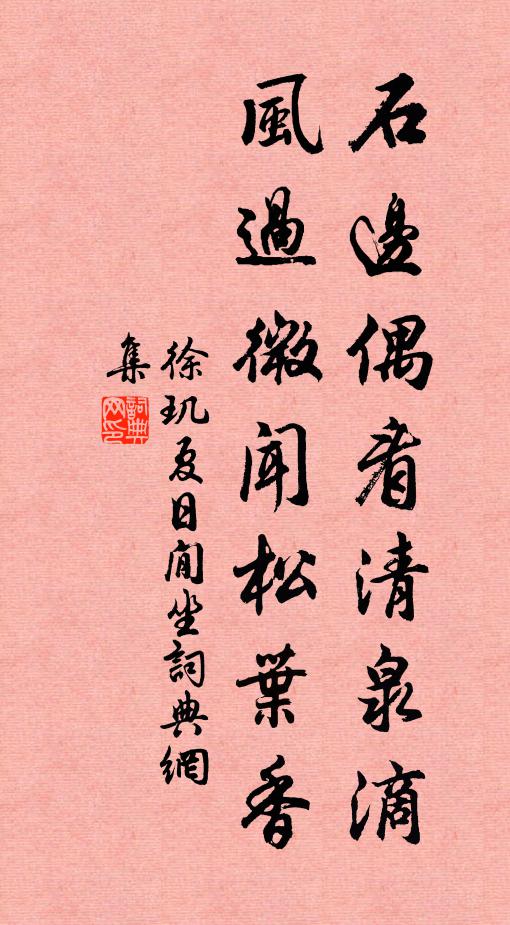 石邊偶看清泉滴
風過微聞松葉香
徐玑夏日閒坐詞典網
集
詞典網印